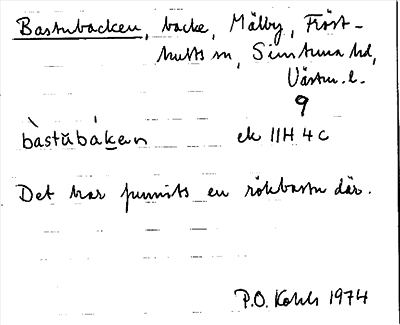 Bastubacken, backe, Mälby, Fröst-
hults sn, Simtuna hd,
Västm. l.
9
bàstŭbákən ek 11H 4c
Det har funnits en rökbastu där.
P.O. Kohls 1974